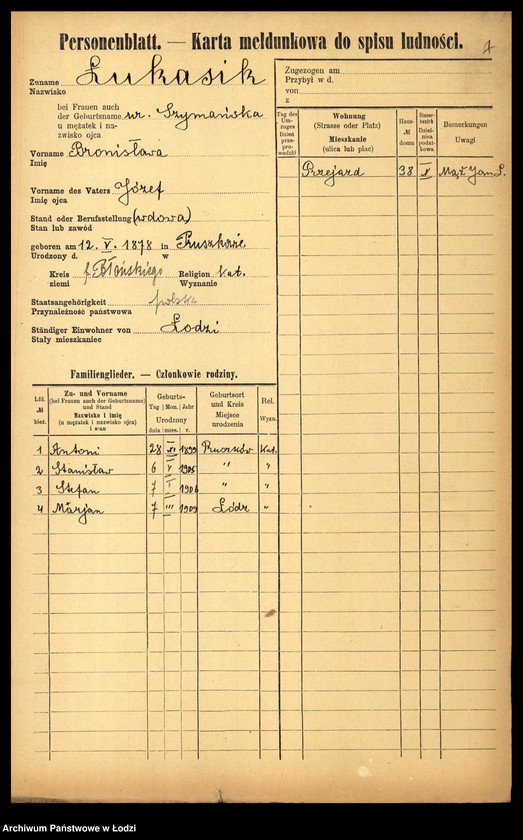 Personenblatt. — Karta meldunkowa do spisu ludności.
4
Zuname Łukasik
Nazwisko
bei Frauen auch
der Geburtsname ur. Szymańska
u mężatek i na-
zwisko ojca
Vorname Bronisława
Imię
Vorname des Vaters Józef
Imię ojca
Stand oder Berufsstellung (wdowa)
Stan lub zawód
geboren am 12. V. 1878 in Pruszkowie
Urodzony d. w
Kreis Błońskiego Religion kat.
ziemi Wyznanie
Staatsangehörigkeit polska
Przynależność państwowa
Ständiger Einwohner von Łodzi
Stały mieszkaniec
Zugezogen am
Przybył w d.
von
z
Tag des Um-zuges Dzień przeprowadzki
Wohnung
(Strasse oder Platz)
Mieszkanie
(ulica lub plac)
Haus-
№
domu
Bemerkungen
Uwagi
Przejazd 38 Mąż Jan
Familienglieder. — Członkowie rodziny.
Lfd. № bież.
Zu- und Vorname
(bei Frauen auch der Geburtsname)
und Stand
Nazwisko i imię
(u mężatek i nazwisko ojca)
i stan
Geburts-
Tag Mon. Jahr
Urodzony
dnia mies. r.
Geburtsort
und Kreis
Miejsce
urodzenia
Rel.
Wyzn.
1 Antoni 28 1899 Pruszków Kat.
2 Stanisław 6 V 1905 " "
3 Stefan 7 I " "
4 Marjan 7 III 1909 Łódź "
Archiwum Państwowe w Łodzi